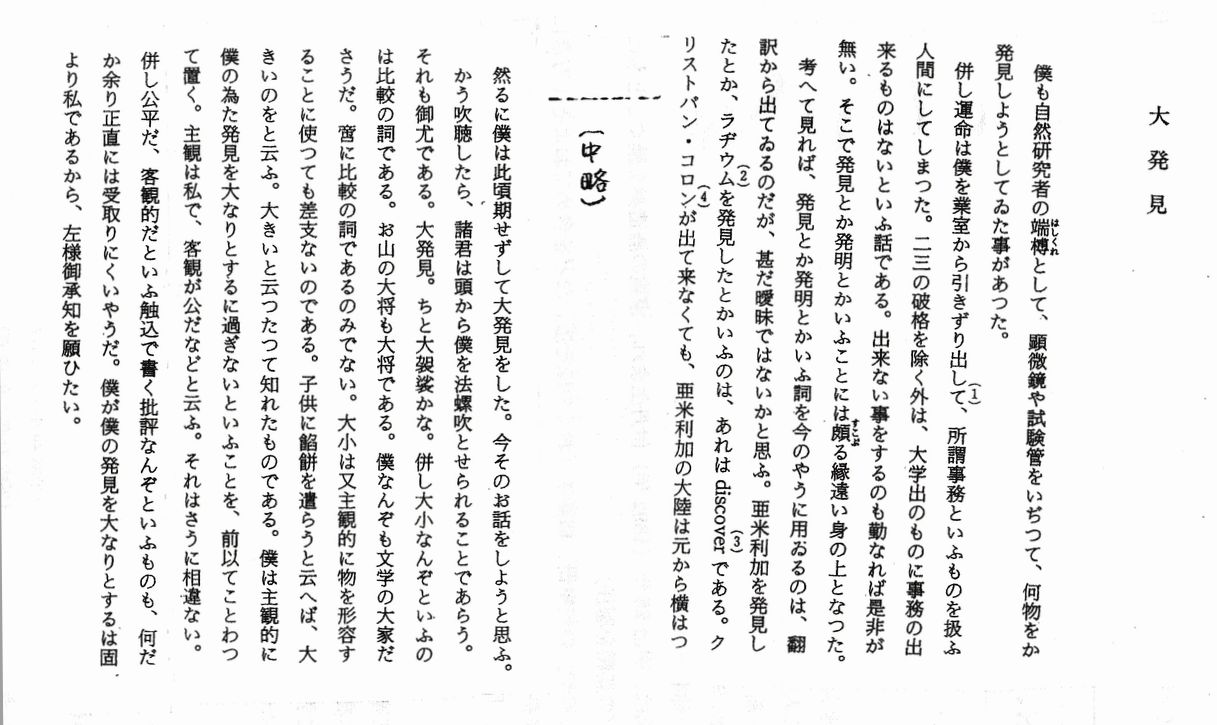 大発見
僕も自然研究者の端榑として、顕微鏡や試験管をいぢつて、何物をか
はしくれ
発見しようとしてゐた事があつた。
併し運命は僕を業室から引きずり出して、所謂事務といふものを扱ふ
(1)
人間にしてしまつた。二三の破格を除く外は、大学出のものに事務の出
来るものはないといふ話である。出来ない事をするのも勤なれば是非が
無い。そこで発見とか発明とかいふことには頗る縁遠い身の上となつた。
すこぶ
考へて見れば、発見とか発明とかいふ詞を今のやうに用ゐるのは、翻
訳から出てゐるのだが、甚だ曖昧ではないかと思ふ。亜米利加を発見し
たとか、ラヂウムを発見したとかいふのは、あれは discover である。ク
(2)
(3)
リストバン・コロンが出て来なくても、亜米利加の大陸は元から横はつ
(4)
(中略)
然るに僕は此頃期せずして大発見をした。今そのお話をしようと思ふ。
かう吹聴したら、諸君は頭から僕を法螺吹とせられることであらう。
それも御尤である。大発見。ちと大袈裟かな。併し大小なんぞといふの
は比較の詞である。お山の大将も大将である。僕なんぞも文学の大家だ
さうだ。啻に比較の詞であるのみでない。大小は又主観的に物を形容す
ることに使つても差支ないのである。子供に餡餅を遣らうと云へば、大
きいのをと云ふ。大きいと云つたつて知れたものである。僕は主観的に
僕の為た発見を大なりとするに過ぎないといふことを、前以てことわつ
て置く。主観は私で、客観が公だなどと云ふ。それはさうに相違ない。
併し公平だ、客観的だといふ触込で書く批評なんぞといふものも、何だ
か余り正直には受取りにくいやうだ。僕が僕の発見を大なりとするは固
より私であるから、左様御承知を願ひたい。